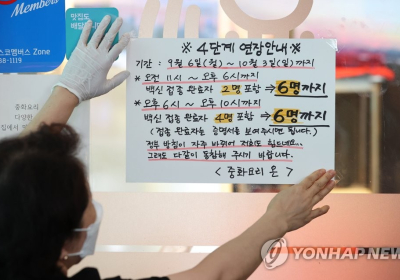 Members
맛집도
배달
스코멤버스 Zone
88-1119
중화요리
다양한
※ 4단계 연장안내 ※
기간 : 9월 6일(월) ~ 10월 3일(일)까지
* 오전 11시 ~ 오후 6시까지
백신 접종 완료자 2명 포함 → 6명까지
* 오후 6시 ~ 오후 10시까지
백신 접종 완료자 4명 포함 → 6명까지
(접종 완료자는 증명서를 보여주시면 됩니다.)
정부 방침이 자주 바뀌어 저희도 힘드네요...
그래도 다같이 동참해 주시기 바랍니다.
< 중화요리 온 >
YONHAP NEWS